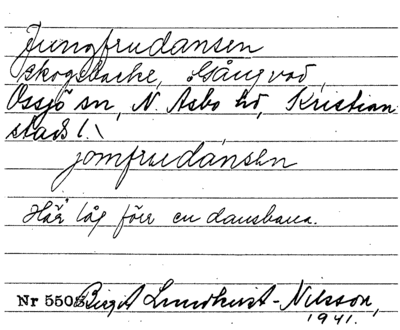 Jungfrudansen
skogsbacke, Gångvad,
Össjö sn, N. Åsbo hd, Kristian
stads l.
jomfrudánsen
Här låg förr en dansbana.
Nr 5503 Birgit Lundkvist-Nilsson,
1941.